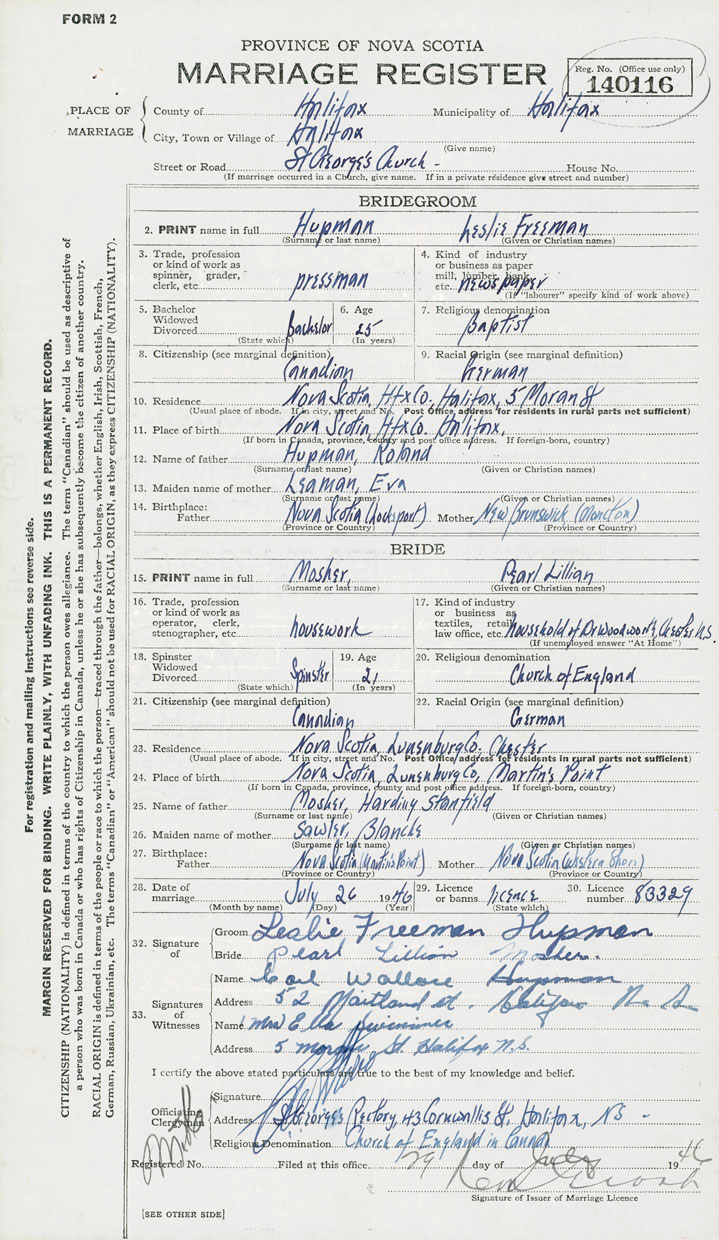 FORM 2
PROVINCE OF NOVA SCOTIA
MARRIAGE REGISTER
Reg. No. (Office use only)
140116
PLACE OF MARRIAGE
County of Halifax Municipality of Halifax
City, Town or Village of Halifax
(Give name)
Street or Road St George's Church - House No.
(If marriage occurred in a Church, give name. If in a private residence give street and number)
BRIDEGROOM
2. PRINT name in full Hupman Leslie Freeman
(Surname or last name) (Given or Christian names)
3. Trade, profession or kind of work as spinner, grader, clerk, etc. pressman
4. Kind of industry or business as paper mill, lumber, bank, etc. newspaper
(If "labourer" specify kind of work above)
5. Bachelor Widowed Divorced Bachelor
(State which)
6. Age 25
(In years)
7. Religious denomination Baptist
8. Citizenship (see marginal definition) Canadian
9. Racial Origin (see marginal definition) German
10. Residence Nova Scotia, Hfx Co. Halifax, 5 Moran St
(Usual place of abode. If in city, street and No. Post Office address for residents in rural parts not sufficient)
11. Place of birth Nova Scotia, Hfx Co. Halifax,
(If born in Canada, province, county and post office address. If foreign-born, country)
12. Name of father Hupman, Roland
(Surname or last name) (Given or Christian names)
13. Maiden name of mother Leaman, Eva
(Surname or last name) (Given or Christian names)
14. Birthplace: Father Nova Scotia (Lockeport) Mother New Brunswick (Moncton)
(Province or Country) (Province or Country)
BRIDE
15. PRINT name in full Mosher, Pearl Lillian
(Surname or last name) (Given or Christian names)
16. Trade, profession or kind of work as operator, clerk, stenographer, etc. housework
17. Kind of industry or business as textiles, retail, law office, etc. household of Dr Woodworth, Chester N.S.
(If unemployed answer "At Home")
18. Spinster Widowed Divorced Spinster
(State which)
19. Age 21
(In years)
20. Religious denomination Church of England
21. Citizenship (see marginal definition) Canadian
22. Racial Origin (see marginal definition) German
23. Residence Nova Scotia, Lunenburg Co. Chester
(Usual place of abode. If in city, street and No. Post Office address for residents in rural parts not sufficient)
24. Place of birth Nova Scotia, Lunenburg Co, Martin's Point
(If born in Canada, province, county and post office address. If foreign-born, country)
25. Name of father Mosher, Harding Stanfield
(Surname or last name) (Given or Christian names)
26. Maiden name of mother Sawler, Blanche
(Surname or last name) (Given or Christian names)
27. Birthplace: Father Nova Scotia (Martins Point) Mother Nova Scotia (Western Shore)
(Province or Country) (Province or Country)
28. Date of marriage July 26 1946
(Month by name) (Day) (Year)
29. Licence or banns licence
(State which)
30. Licence number 83329
32. Signature of
Groom Leslie Freeman Hupman
Bride Pearl Lillian Mosher.
33. Signatures of Witnesses
Name Carl Wallace Hupman
Address 52 Maitland St. Halifax N. S.
Name Mrs Ella
Address 5 St. Halifax N.S.
I certify the above stated particulars are true to the best of my knowledge and belief.
Officiating Clergyman
Signature
Address St Georges Rectory, 43 Cornwallis St, Halifax, NS -
Religious Denomination Church of England in Canada
Registered No. Filed at this office. 29 day of July 1946
Signature of Issuer of Marriage Licence
[SEE OTHER SIDE]
For registration and mailing instructions see reverse side.
MARGIN RESERVED FOR BINDING. WRITE PLAINLY, WITH UNFADING INK. THIS IS A PERMANENT RECORD.
CITIZENSHIP (NATIONALITY) is defined in terms of the country to which the person owes allegiance. The term "Canadian" should be used as descriptive of
a person who was born in Canada or who has rights of Citizenship in Canada, unless he or she has subsequently become the citizen of another country.
RACIAL ORIGIN is defined in terms of the people or race to which the person—traced through the father—belongs, whether English, Irish, Scottish, French,
German, Russian, Ukrainian, etc. The terms "Canadian" or "American" should not be used for RACIAL ORIGIN, as they express CITIZENSHIP (NATIONALITY).